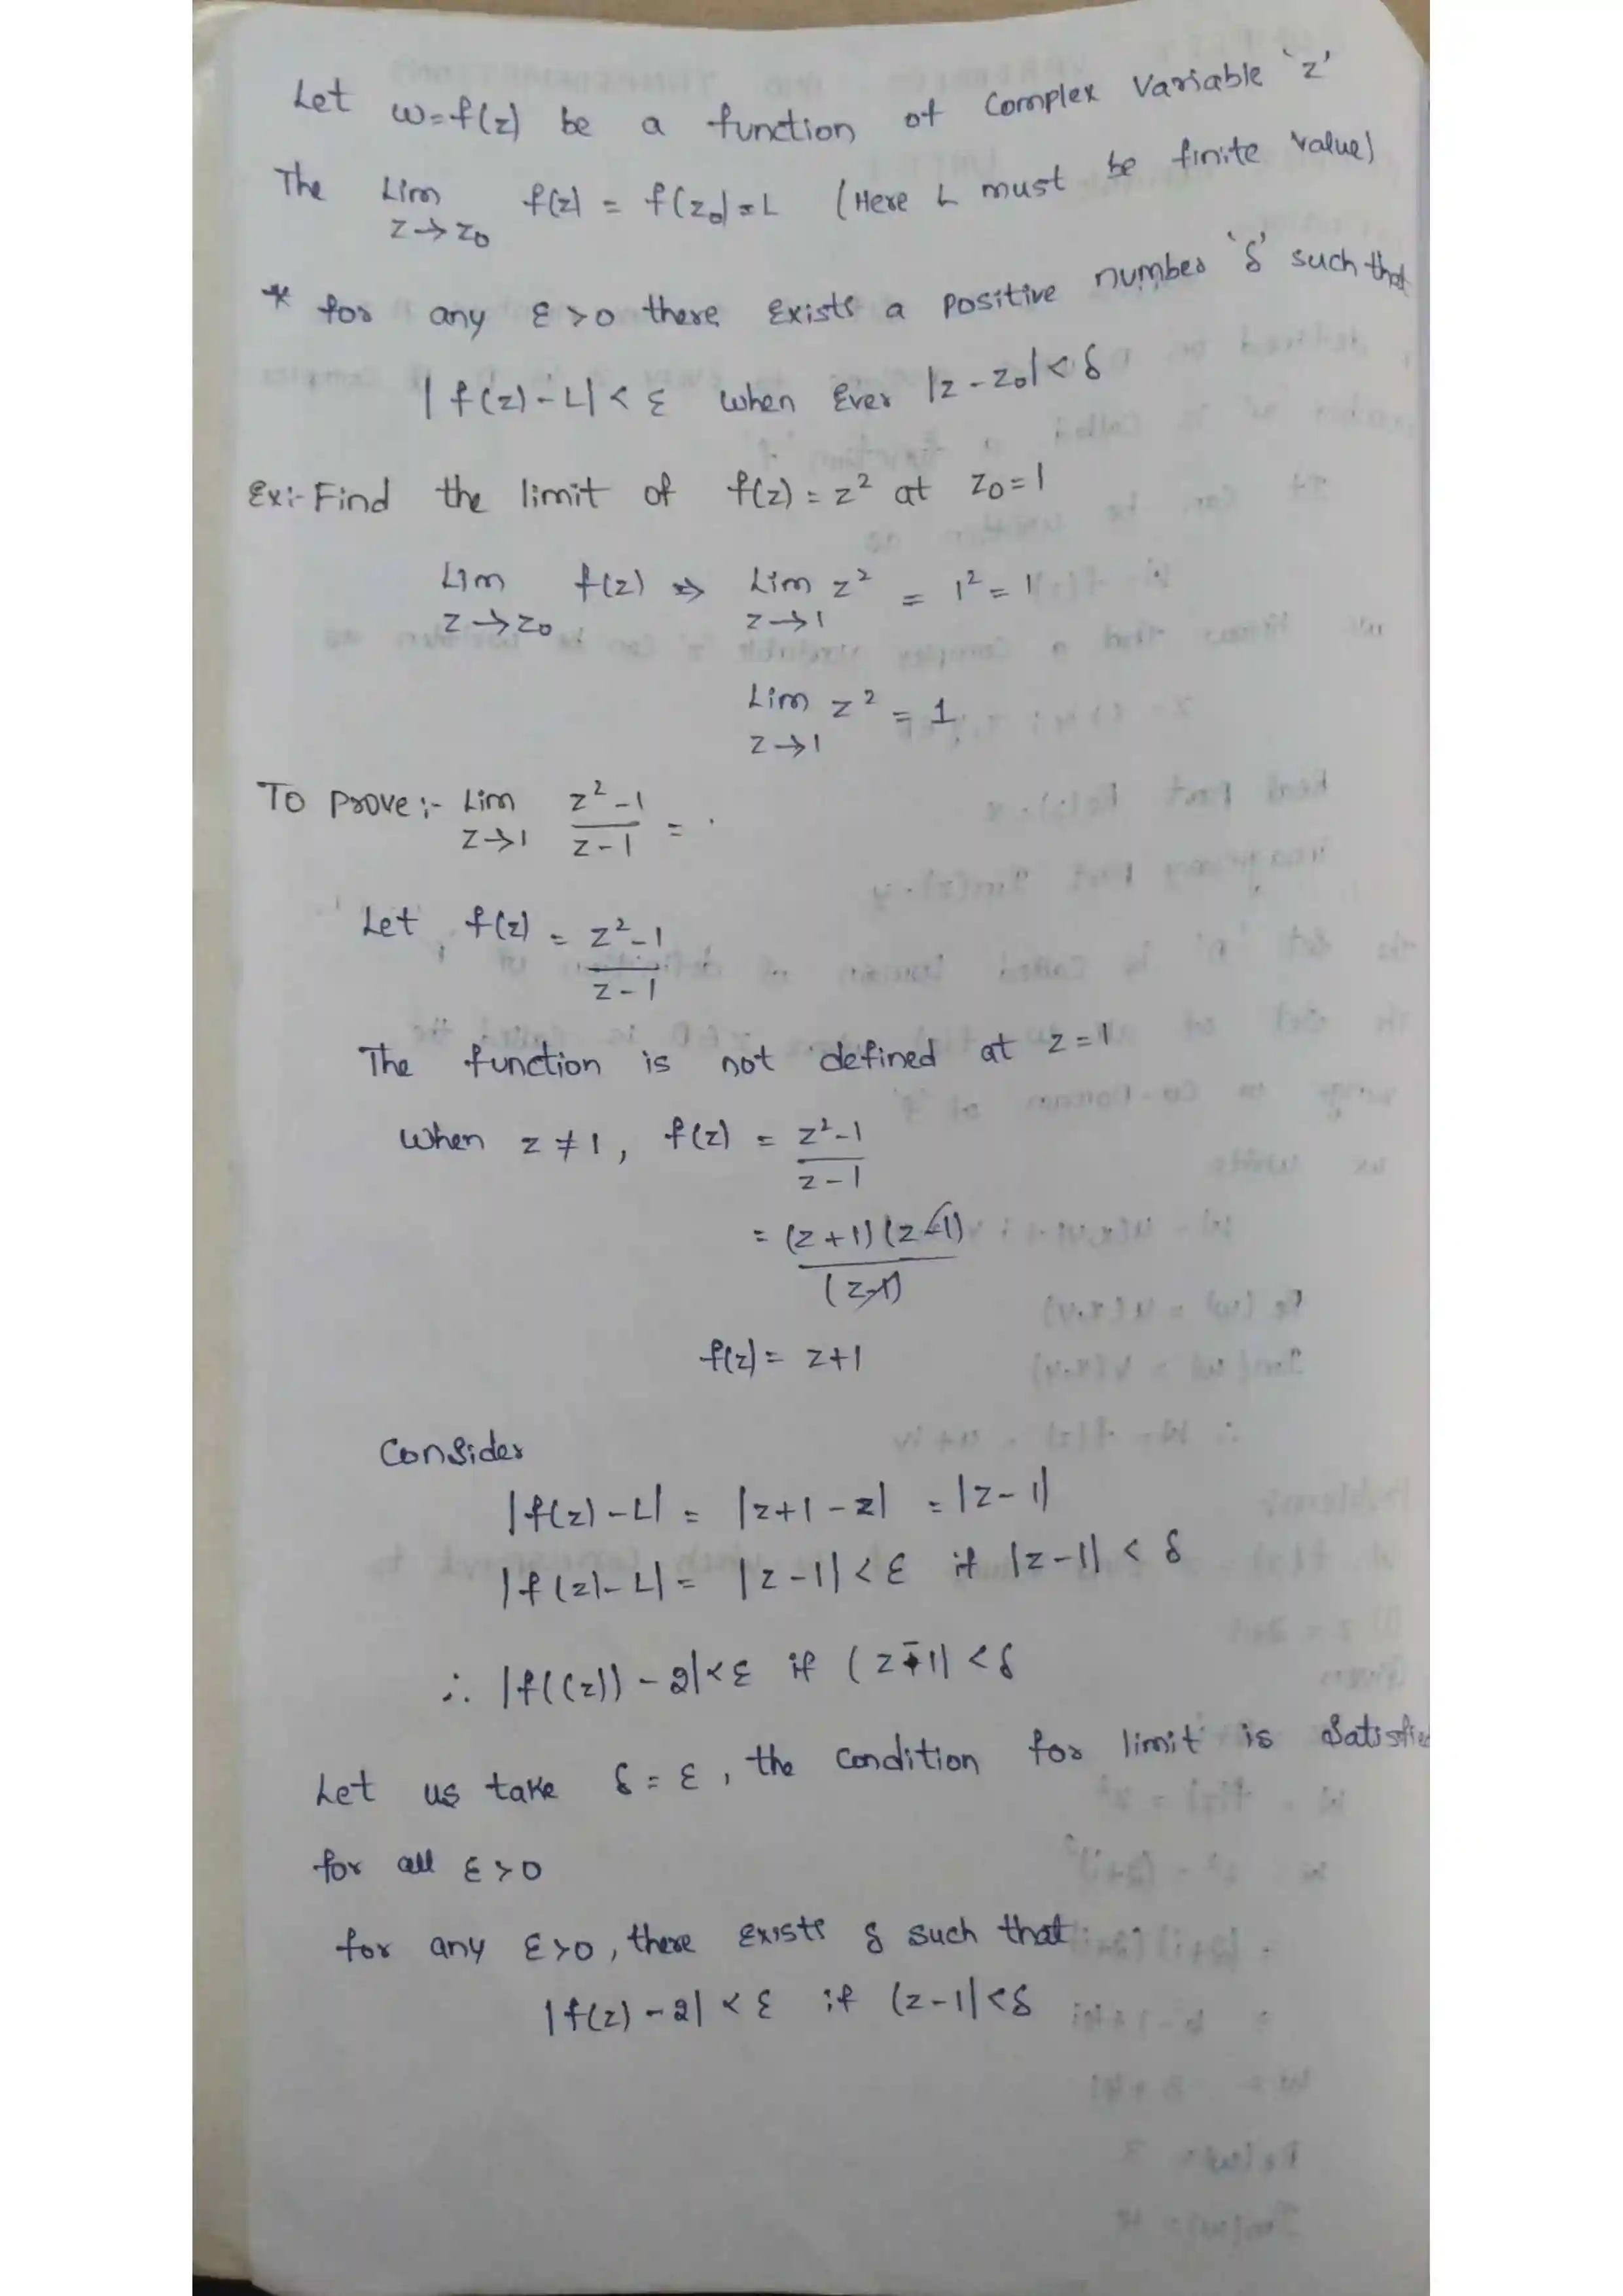 Let w=f(z) be a function of Complex Variable 'z'
The Lim z→z₀ f(z) = f(z₀) = L (Here L must be finite value)
* for any ε>0 there exists a positive number 'δ' such that
|f(z)-L| < ε when Ever |z-z₀| < δ
Ex:- Find the limit of f(z) = z² at z₀=1
Lim z→z₀ f(z) ⇒ Lim z→1 z² = 1² = 1
Lim z→1 z² = 1
To prove:- Lim z→1 (z²-1)/(z-1) = .
Let, f(z) = (z²-1)/(z-1)
The function is not defined at z=1
When z≠1, f(z) = (z²-1)/(z-1)
= (z+1)(z-1)/(z-1)
f(z) = z+1
Consider
|f(z)-L| = |z+1-2| = |z-1|
|f(z)-L| = |z-1| < ε if |z-1| < δ
∴ |f((z))-2| < ε if (z-1| < δ
Let us take δ=ε, the condition for limit is Satisfied
for all ε>0
for any ε>0, there exists δ such that
|f(z)-2| < ε if (z-1|<δ